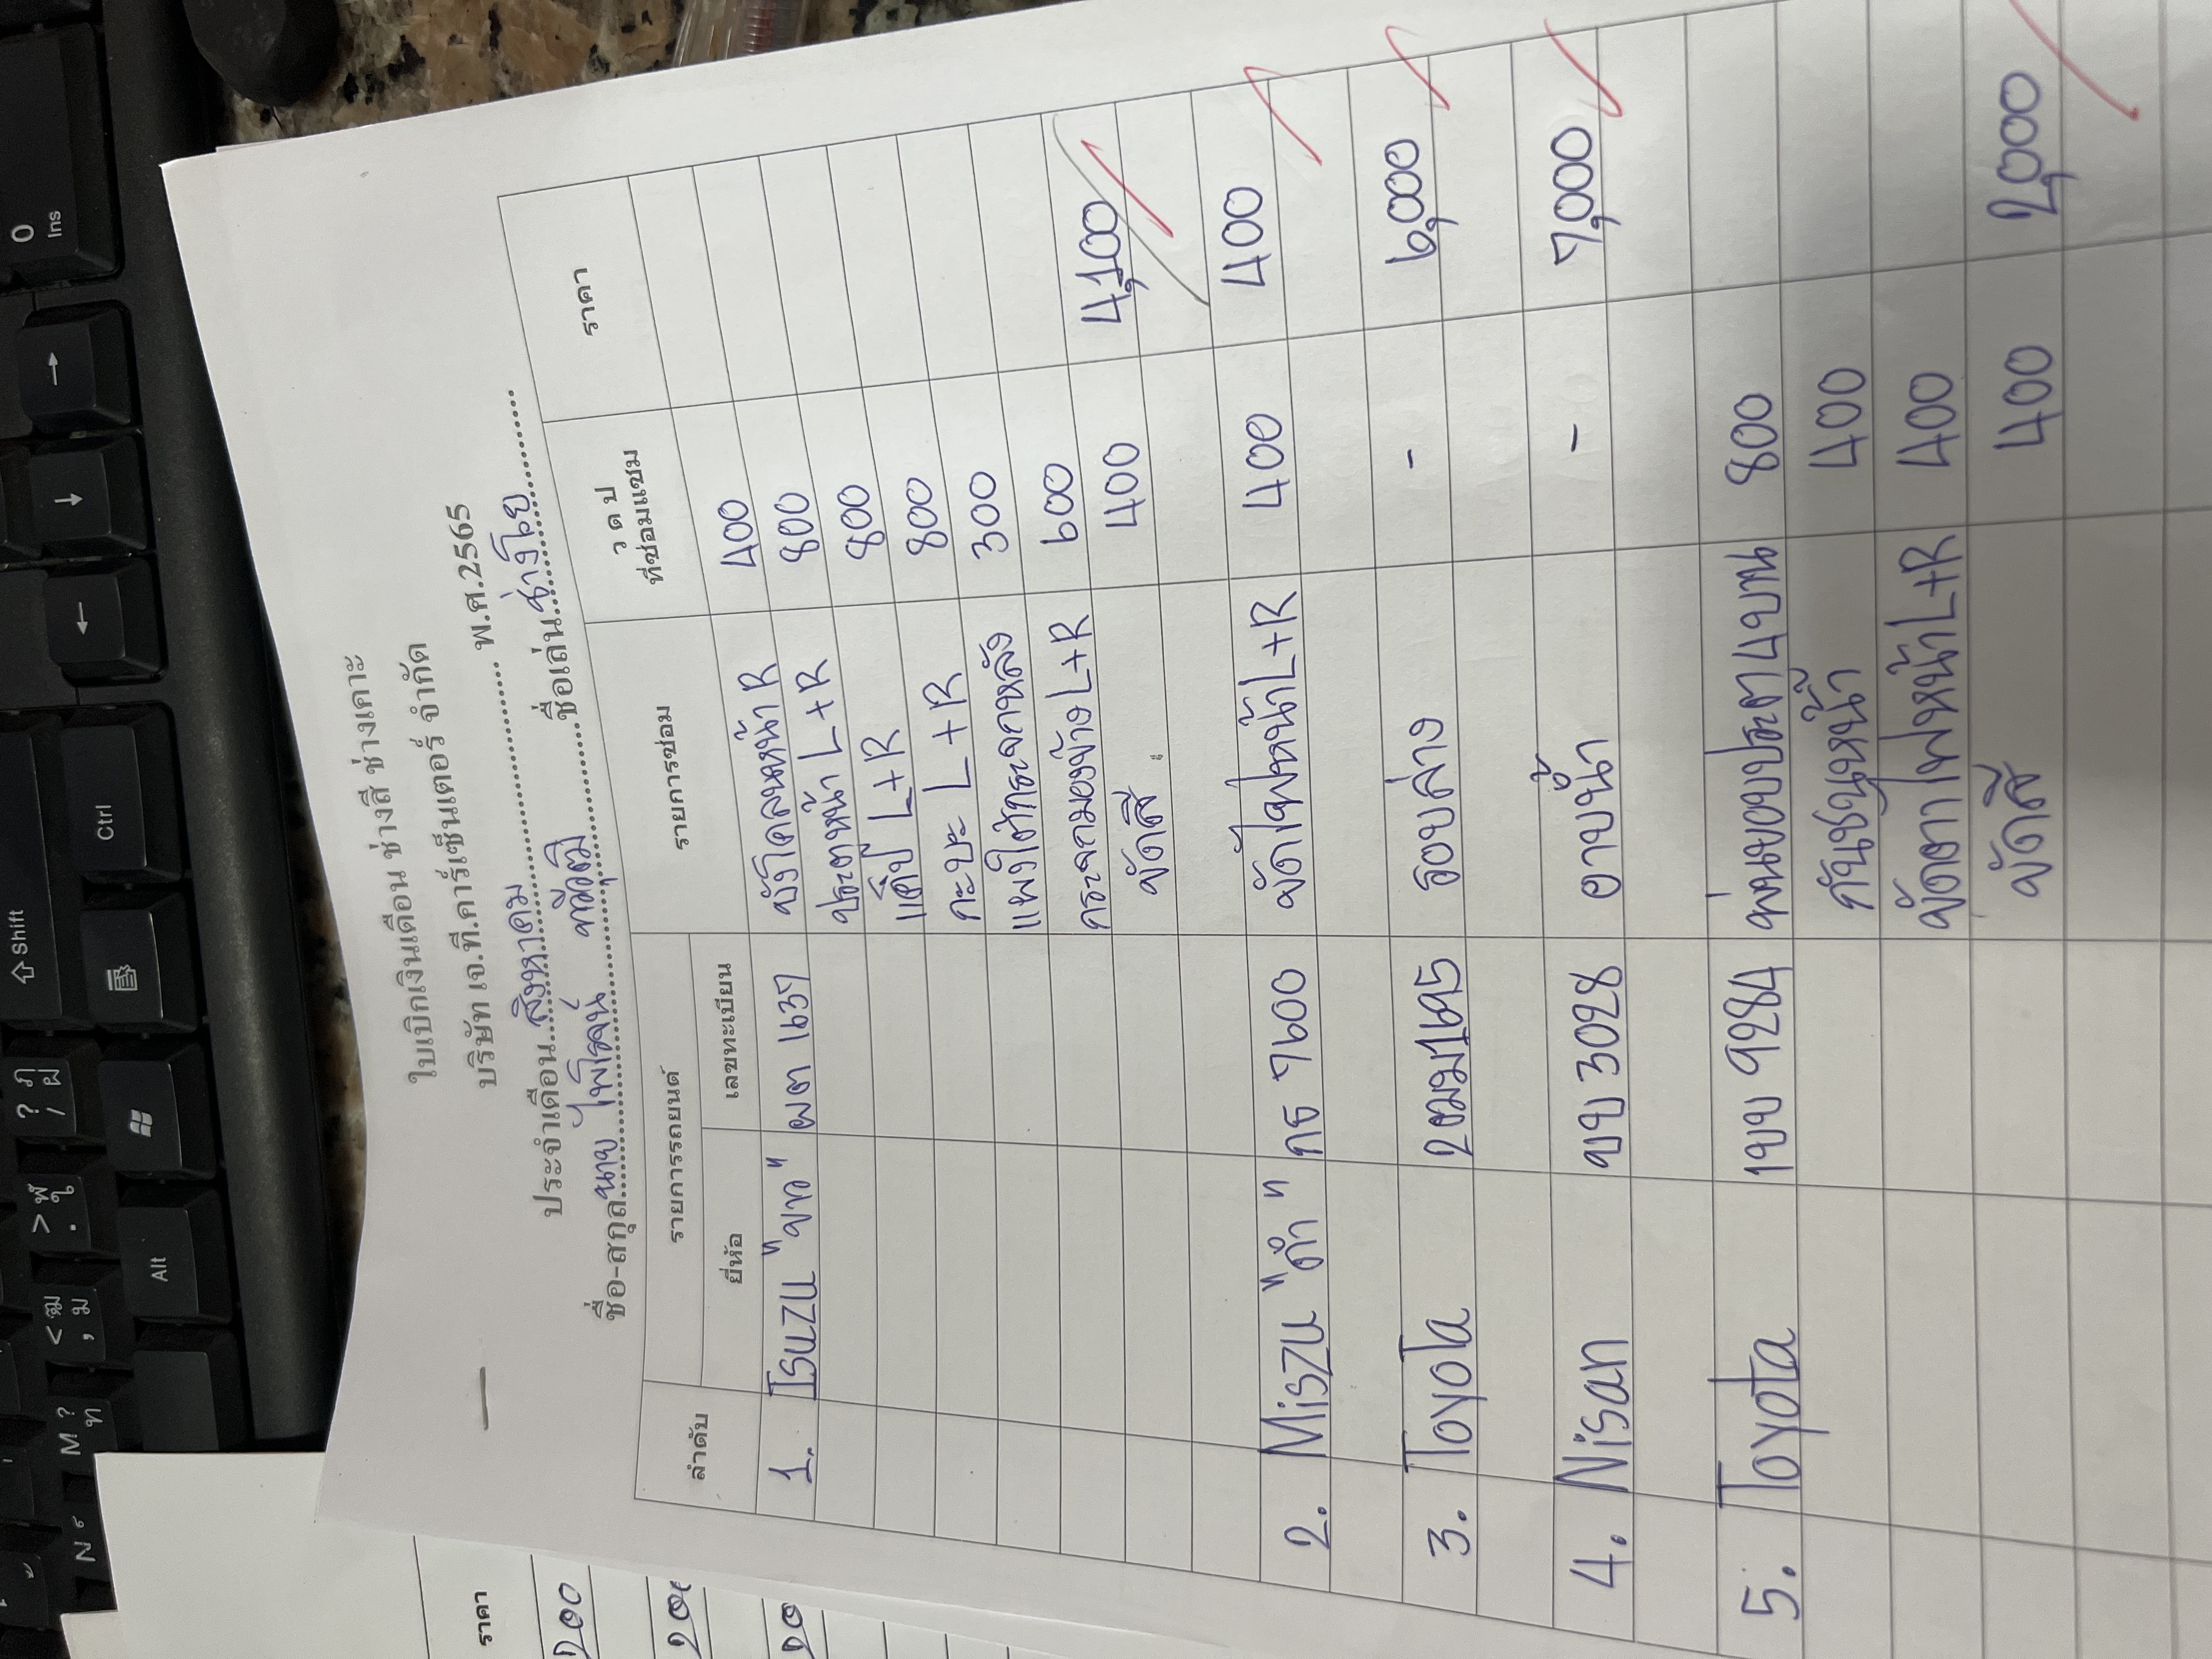 ใบเบิกเงินเดือน ช่างสี ช่างเคาะ
บริษัท เจ.ที.คาร์เซ็นเตอร์ จำกัด
ประจำเดือน สิงหาคม พ.ศ.2565
ชื่อ-สกุล นาย ไพโรจน์ ชื่อเล่น ช่างโย
ลำดับ รายการรถยนต์ รายการซ่อม ว ด ป ที่ซ่อมแซม ราคา
ยี่ห้อ เลขทะเบียน
1. Isuzu "ขาว" ผต 1637 บังโคลนหน้า R 400
ประตูหน้า L+R 800
แค็ป L+R 800
กะบะ L+R 800
แผงใต้กระจกหลัง 300
กระจกมองข้าง L+R 600 4,100
ขัดสี 400
2. Miszu "ดำ" กธ 7600 ขัดไฟหน้า L+R 400 400
3. Toyota 2ฒมม1695 รอบล่าง - 6,000
4. Nisan ขบ 3028 อาบน้ำ - 7,000
5. Toyota 1ขข 9284 พ่นขอบประตู 4 บาน 800
กันชนหน้า 400
ขัดตาไฟหน้า L+R 400
ขัดสี 400 2,000
ราคา
200
0
Ins
Shift
Ctrl
Alt